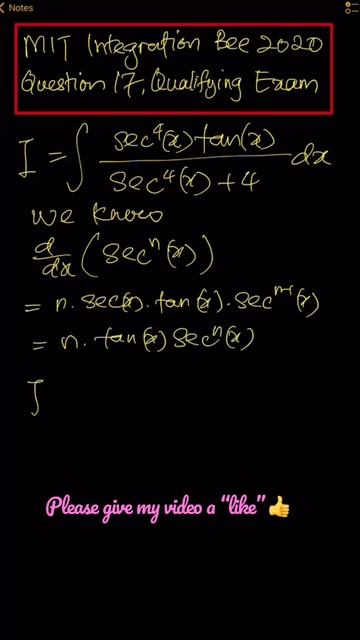 Notes
MIT Integration Bee 2020
Question 17, Qualifying Exam
I = ∫ sec⁴(x) tan(x) / sec⁴(x) + 4 dx
we know
d/dx (secⁿ(x))
= n. sec(x). tan(x). secⁿ⁻¹(x)
= n. tan(x) secⁿ(x)
∫
Please give my video a “like” 👍